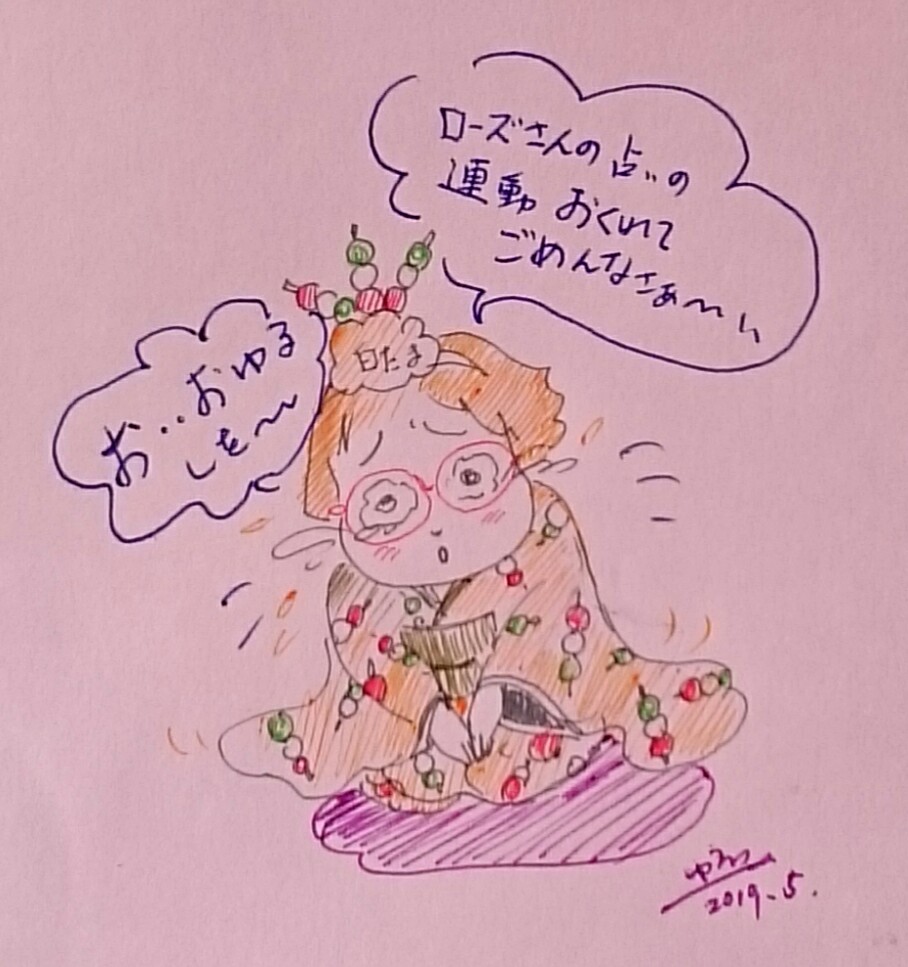 ローズさんの占いの
運動 おくれて
ごめんなさぁ〜い
お‥おゆる
しを〜
白たま
ゆみ
2019-5.